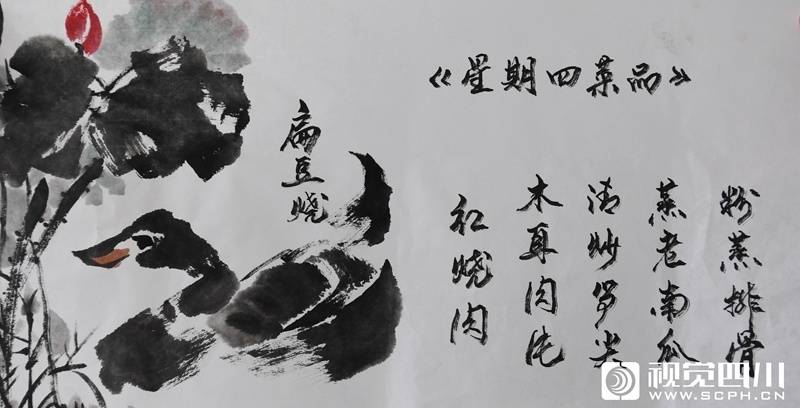 《星期四菜品》
粉蒸排骨
蒸老南瓜
清炒 尖
木耳肉片
红烧肉
扁豆烧
视觉四川
WWW.SCPH.CN